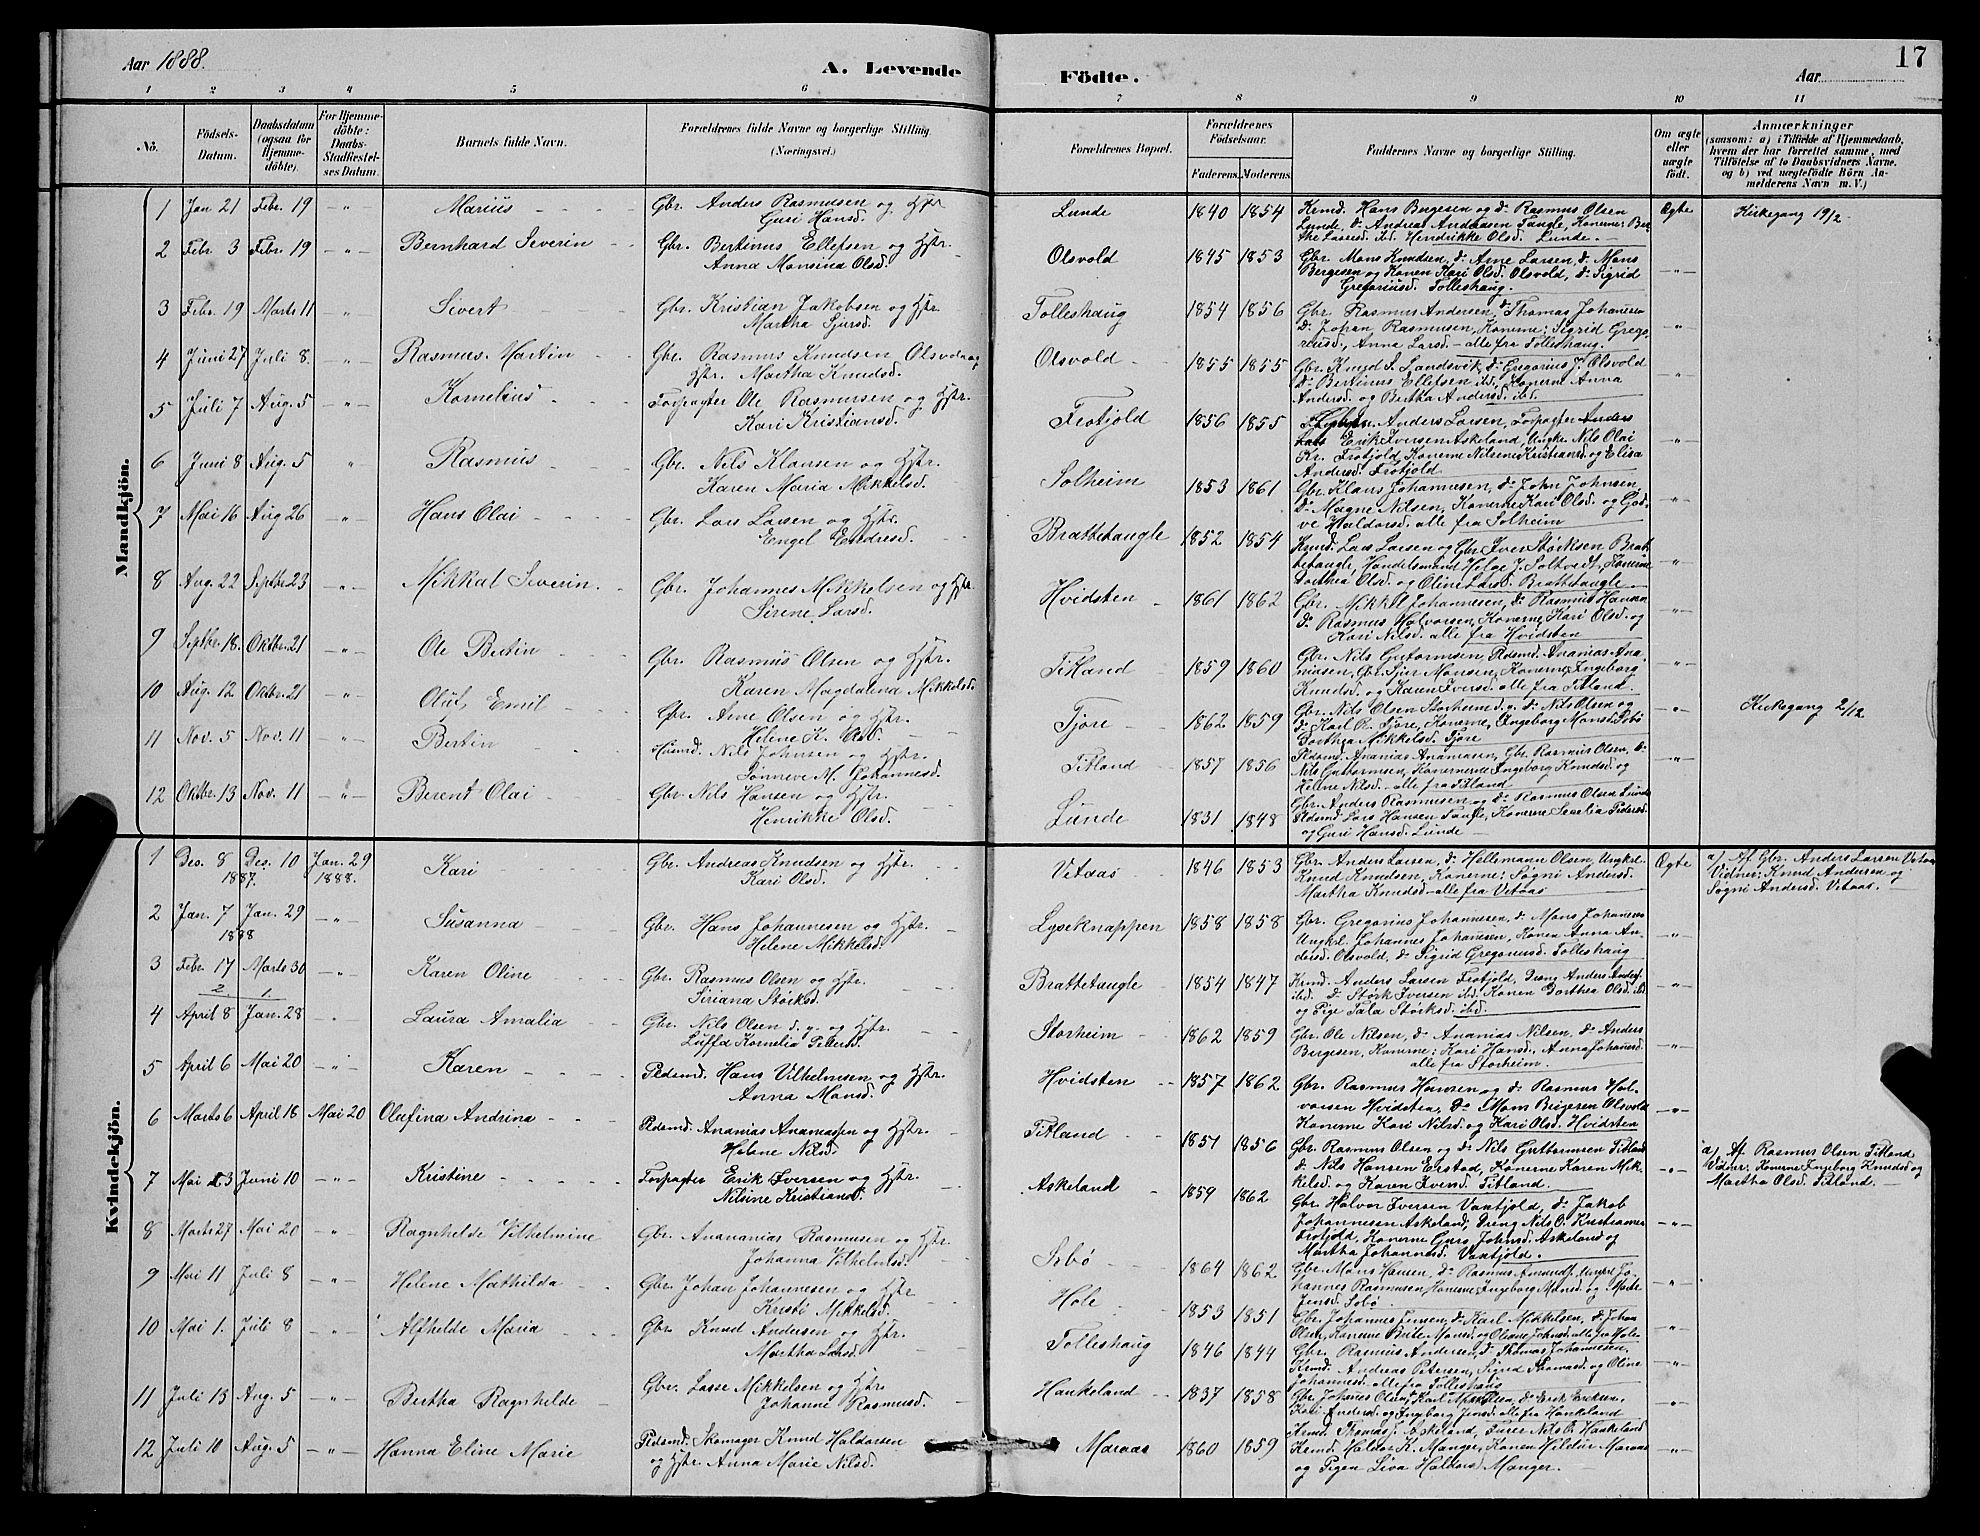 Aar 1888.
A. Levende
Födte.
Aar
17
1 2 3 4 5 6 7 8 9 10 11
No.
Födsels-
Datum.
Daabsdatum
(ogsaa for
Hjemme-
döbte).
For Hjemme-
döbte:
Daabs-
Stadfæstel-
ses Datum.
Barnets fulde Navn.
Forældrenes fulde Navne og borgerlige Stilling.
(Næringsvei.)
Forældrenes Bopæl.
Forældrenes
Födselsaar.
Faderens. Moderens.
Faddernes Navne og borgerlige Stilling.
Om ægte
eller
uægte
födt.
Anmærkninger
(saasom: a) i Tilfælde af Hjemmedaab,
hvem der har forrettet samme, med
Tilföielse af to Daabsvidners Navne.
og b) ved uægtefödte Börn An-
melderens Navn m. V.)
Mandkjön.
1 Jan 21 Febr. 19 -"- Marius Gbr. Anders Rasmusen og Hstr
Guri Hansd. Lunde 1840 1854 Krmd. Hans Bergesen og do Rasmus Olsen
Lunde, do Andreas Andersen Taugle, Konerne: Ber
the Larsd. ibd. Hendrikke Olsd. Lunde. Ægte Kirkegang 19/2
2 Febr. 3 Febr. 19 -"- Bernhard Severin Gbr. Bertinus Ellefsen og Hstr.
Anna Monsina Olsd. Olsvold 1845 1853 Gbr. Mons Knudsen, do Arne Larsen, do Mons
Bergesen og Konen Kari Olsd. Olsvold, do Sigrid
Gregoriusd. Tolleshaug. -"-
3 Febr. 19 Marts 11 -"- Sivert Gbr. Kristian Jakobsen og Hstr
Martha Sjursd. Tolleshaug 1854 1856 Gbr. Rasmus Andersen, do Thomas Johannesen
do Johan Rasmusen, Konerne: Sigrid Grego-
riusd., Anna Larsd. alle fra Tolleshaug. -"-
4 Juni 27 Juli 8. -"- Rasmus Martin Gbr. Rasmus Knudsen Olsvold og
Hstr. Martha Knudsd. Olsvold 1855 1855 Gbr. Knud S. Landsvik, do Gregorius J. Olsvold
do Bertinus Ellefsen ibd. Konerne Anna
Andersd. og Bertha Andersd. ibd. -"-
5 Juli 7 Aug. 5 -"- Kornelius Forpagter Ole Rasmusen og Hstr.
Kari Kristiansd. Frotjold 1856 1855 Anders Larsen, Forpagter
Erik Iversen Askeland, Ungkr. Nils Olai
Kr. Frotjold, Konerne Nilsine Kristiansd. og Elisa
Andersd. Frotjold -"-
6 Juni 8 Aug. 5 " Rasmus Gbr. Nils Klausen og Hstr.
Karen Maria Mikkelsd. Solheim 1853 1861 Gbr. Klaus Johannesen, do John Johnsen,
do Magne Nilsen, Konerne Kari Olsd. og Gjod-
ve Haldorsd. alle fra Solheim -"-
7 Mai 16 Aug 26 -"- Hans Olai Gbr. Lars Larsen og Hstr.
Engel Endresd. Brattetaugle 1852 1854 Krmd. Lars Larsen og Gbr. Iver Störksen Brat
tetaugle, Handelsmand Helge J. Soltvedt, Konerne
Dorthea Olsd. og Oline Larsd. Brattetaugle -"-
8 Aug. 22 Septbr. 23 -"- Mikkal Severin Gbr. Johannes Mikkelsen og Hstr
Sirene Larsd. Hvidsten 1861 1862 Gbr. Mikkel Johannesen, do Rasmus Hansen
do Rasmus Halvorsen, Konerne Kari Olsd. og
Kari Nilsd. alle fra Hvidsten -"-
9 Septbr. 18. Oktbr. 21 -"- Ole Bertin Gbr. Rasmus Olsen og Hstr.
Karen Magdalena Mikkelsd. Titland 1859 1860 Gbr. Nils Guttormsen, Pldsmd. Ananias Ana-
niasen, Gbr. Sjur Monsen, Konerne Ingeborg
Knudsd. og Karen Iversd. alle fra Titland. -"-
10 Aug. 12 Oktbr. 21 -"- Oluf Emil Gbr. Arne Olsen og Hstr.
Helene K. Olsd. Fjore 1862 1859 Gbr. Nils Olsen Storheim d.y. do Nils Olsen og
do Karl R. Fjore, Konerne, Ingeborg Monsd. Sobö
Dorthea Mikkelsd. Fjore -"- Kirkegang 2/12
11 Nov. 5 Nov. 11 -"- Bertin Husmd. Nils Johnsen og Hstr.
Sönneve M. Johannesd. Titland 1857 1856 Pldsmd. Ananias Ananiasen, Gbr. Rasmus Olsen, do
Nils Guttormsen, Konerne Ingeborg Knudsd. og
Helene Nilsd. alle fra Titland -"-
12 Oktbr. 13 Nov. 11 -"- Berent Olai Gbr. Nils Hansen og Hstr.
Henrikke Olsd. Lunde 1831 1848 Gbr. Anders Rasmusen og do Rasmus Olsen Lunde
Pldsmd. Lars Hansen Taugle, Konerne Pedersd.
og Guri Hansd. Lunde
Kvindekjön.
1 Des. 8 Des. 10 Jan. 29
1887. 1888. Kari Gbr. Andreas Knudsen og Hstr.
Kari Olsd. Vetaas 1846 1853 Gbr. Anders Larsen, do Hellemann Olsen, Ungkrl.
Knud Knudsen, Konerne: Sogni Andersd.
Martha Knudsd. alle fra Vetaas Ægte a) Af Gbr. Anders Larsen Vetaas
Vidner: Knud Andersen og
Sogni Andersd. Vetaas.
2 Jan. 7 Jan. 29 -"-
1888 Susanna Gbr. Hans Johannesen og Hstr.
Helene Mikkelsd. Lyseknappen 1858 1858 Gbr. Gregorius Johannesen, do Mons Johannesen
Ungkl. Johannes Johannesen, Konen Anna An-
dersd. Olsvold, do Sigrid Gregoriusd. Tolleshaug -"-
3 Febr. 17 Marts 30 -"- Karen Oline Gbr. Rasmus Olsen og Hstr.
Siriana Störksd. Brattetaugle 1854 1847 Krmd. Anders Larsen Frotjold, Dreng Anders Andersd.
ibd. do Störk Iversen ibd. Konen Dorthea Olsd. ibd.
og Pige Tala Störksd. ibd. -"-
2 1
4 April 8 Jan. 28 -"- Laura Amalia Gbr. Nils Olsen d. y. og Hstr.
Luffa Kornelia Petersd. Storheim 1862 1859 Gbr. Ole Nilsen, do Ananias Nilsen, do Anders
Bergesen, Konerne: Kari Hansd., Anna Johannesd.
alle fra Storheim. -"-
5 April 6 Mai 20 -"- Karen Pldsmd. Hans Vilhelmsen og Hstr.
Anna Monsd. Hvidsten 1857 1862 Gbr. Rasmus Hansen og do Rasmus Hal-
vorsen Hvidsten, do Mons Birgesen Olsvold
Konerne Kari Nilsd. og Kari Olsd. Hvidsten -"-
6 Marts 6 April 18 Mai 20 Olafina Andrina Pldsmd. Ananias Ananiassen og Hstr.
Helene Nilsd. Titland 1851 1856 Gbr. Rasmus Olsen og do Nils Guttormsen Titland
do Nils Hansen Erstad, Konerne Karen Mik-
kelsd. og Karen Iversd. Titland. -"- a) Af Rasmus Olsen Titland
Vidner: Konerne Ingeborg Knudsd. og
Martha Olsd. Titland.
7 Mai 3 Juni 10 -"- Kristine Forpagter Erik Iversen og Hstr.
Nilsine Kristiansd. Askeland 1859 1862 Gbr. Halvor Iversen Vaxtjold, do Jakob
Johannesen Askeland, Dreng Nils O. Kristiansen
Frotjold, Konerne Guro Johnsd. Askeland og
Martha Johannesd. Vaxtjold. -"-
8 Marts 27 Mai 20 -"- Ragnhelde Vilhelmine Gbr. Anananias Rasmusen og Hstr.
Johanna Vilhelmsd. Sobö 1864 1862 Gbr. Mons Hansen, do Rasmus Amunds. Ungkrl. Jo-
hannes Rasmusen, Konerne Ingeborg Monsd. og Marte
Jensd. Sobö. -"-
9 Mai 11 Juli 8 -"- Helene Mathilda Gbr. Johan Johannesen og Hstr
Kristi Mikkelsd. Hole 1853 1851 Gbr. Johannes Jensen, do Karl Mikkelsen, do Johan
Olsen, Konerne Brite Monsd. og Oliane Johnsd. alle fra Hole -"-
10 Mai 1. Juli 8 -"- Alfhelde Maria Gbr. Knud Andersen og Hstr.
Martha Larsd. Tolleshaug 1846 1844 Gbr. Rasmus Andersen, do Thomas Johannesen,
Krmd. Andreas Petersen, Sigrid Thomasd. og Oline
Johannesd. alle fra Tolleshaug -"-
11 Juli 13 Aug. 5 -"- Bertha Ragnhelde Gbr. Lasse Mikkelsen og Hstr
Johanne Rasmusd. Haukeland 1837 1858 Gbr. Johannes Olsen, Karl Mikkelsen, do Erik Eriksen,
Kari Andersd. og Ingeborg Jensd. alle fra Haukeland -"-
12 Juli 10 Aug. 5 -"- Hanna Eline Marie Pldsmd. Skomager Knud Haldorsen
og Hstr. Anna Marie Nilsd. Maraas 1860 1859 Krmd. Thomas J. Askeland, Furer Nils O. Haukeland
Krmd. Haldor K. Manger, Konen Hildur Maraas
og Pigen Siva Haldorsd. Manger. -"-